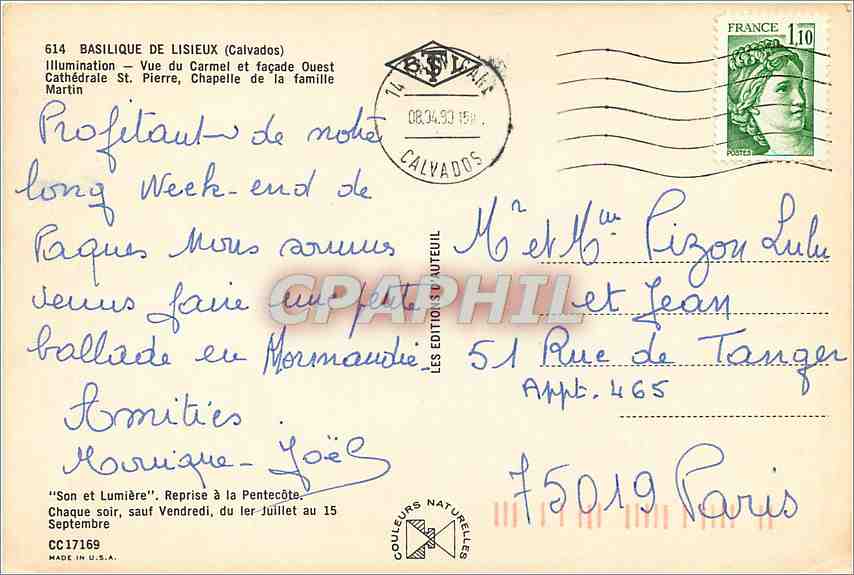 614 BASILIQUE DE LISIEUX (Calvados)
Illumination — Vue du Carmel et façade Ouest
Cathédrale St. Pierre, Chapelle de la famille
Martin
Profitant de notre
long Week-end de
Paques nous sommes
venus faire une petite
ballade en Normandie.
Amitiés
Monique - Joël
"Son et Lumière". Reprise à la Pentecôte.
Chaque soir, sauf Vendredi, du 1er Juillet au 15
Septembre
CC17169
MADE IN U.S.A.
LES EDITIONS D'AUTEUIL
COULEURS NATURELLES
CALVADOS
FRANCE 1,10
POSTES
Mr et Mme Pizon Lulu
et Jean
51 Rue de Tanger
Appt. 465
75019 Paris
CPAPHIL